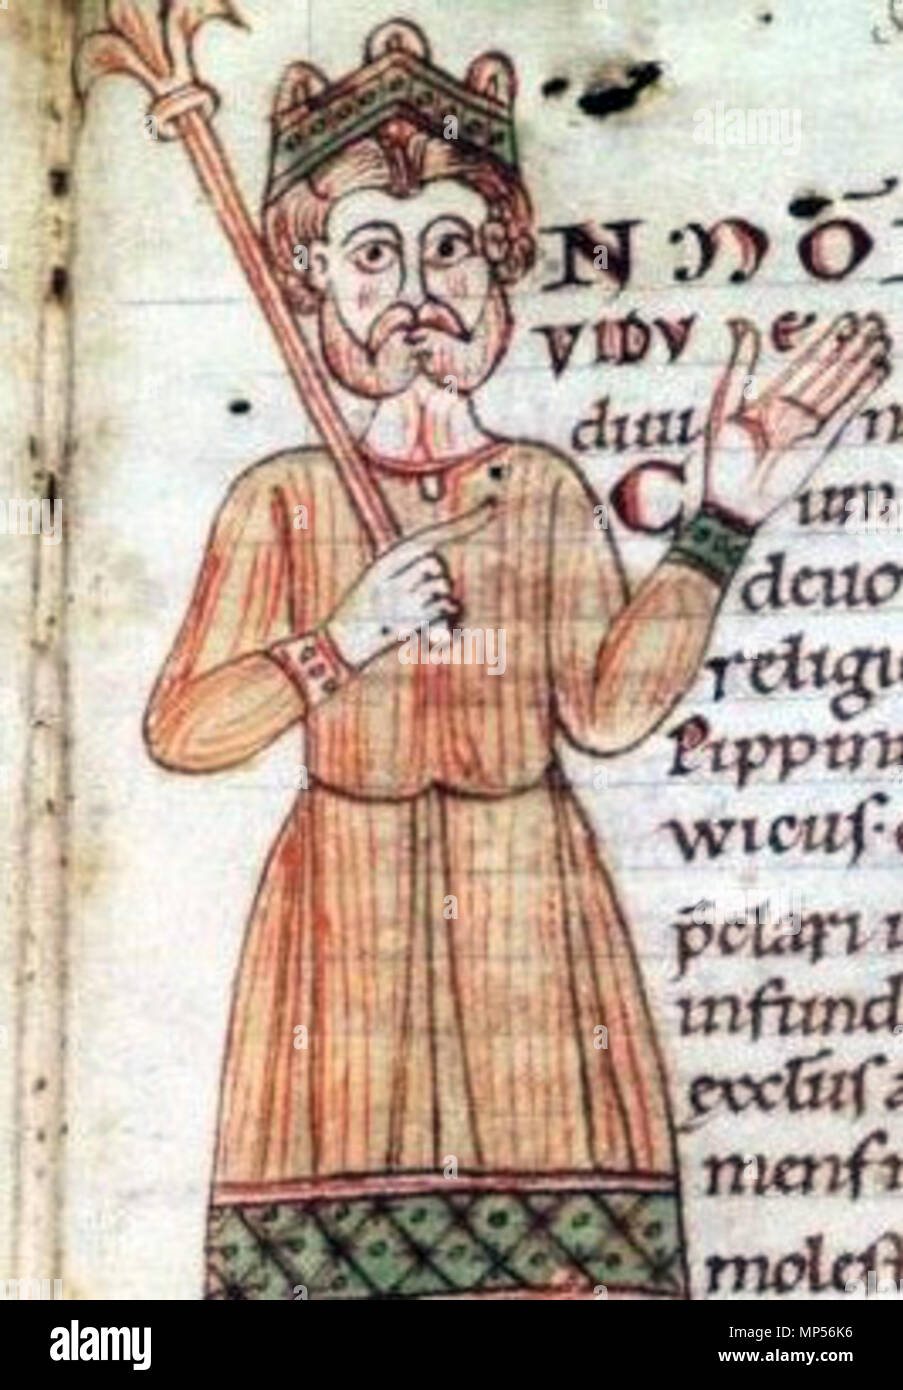 N NO
VIDV DE
diui
Cum
deuo
religi
Pippini
wicus·
p̄clari
infund
mens
molest
alamy
Image ID: MP56K6
www.alamy.com